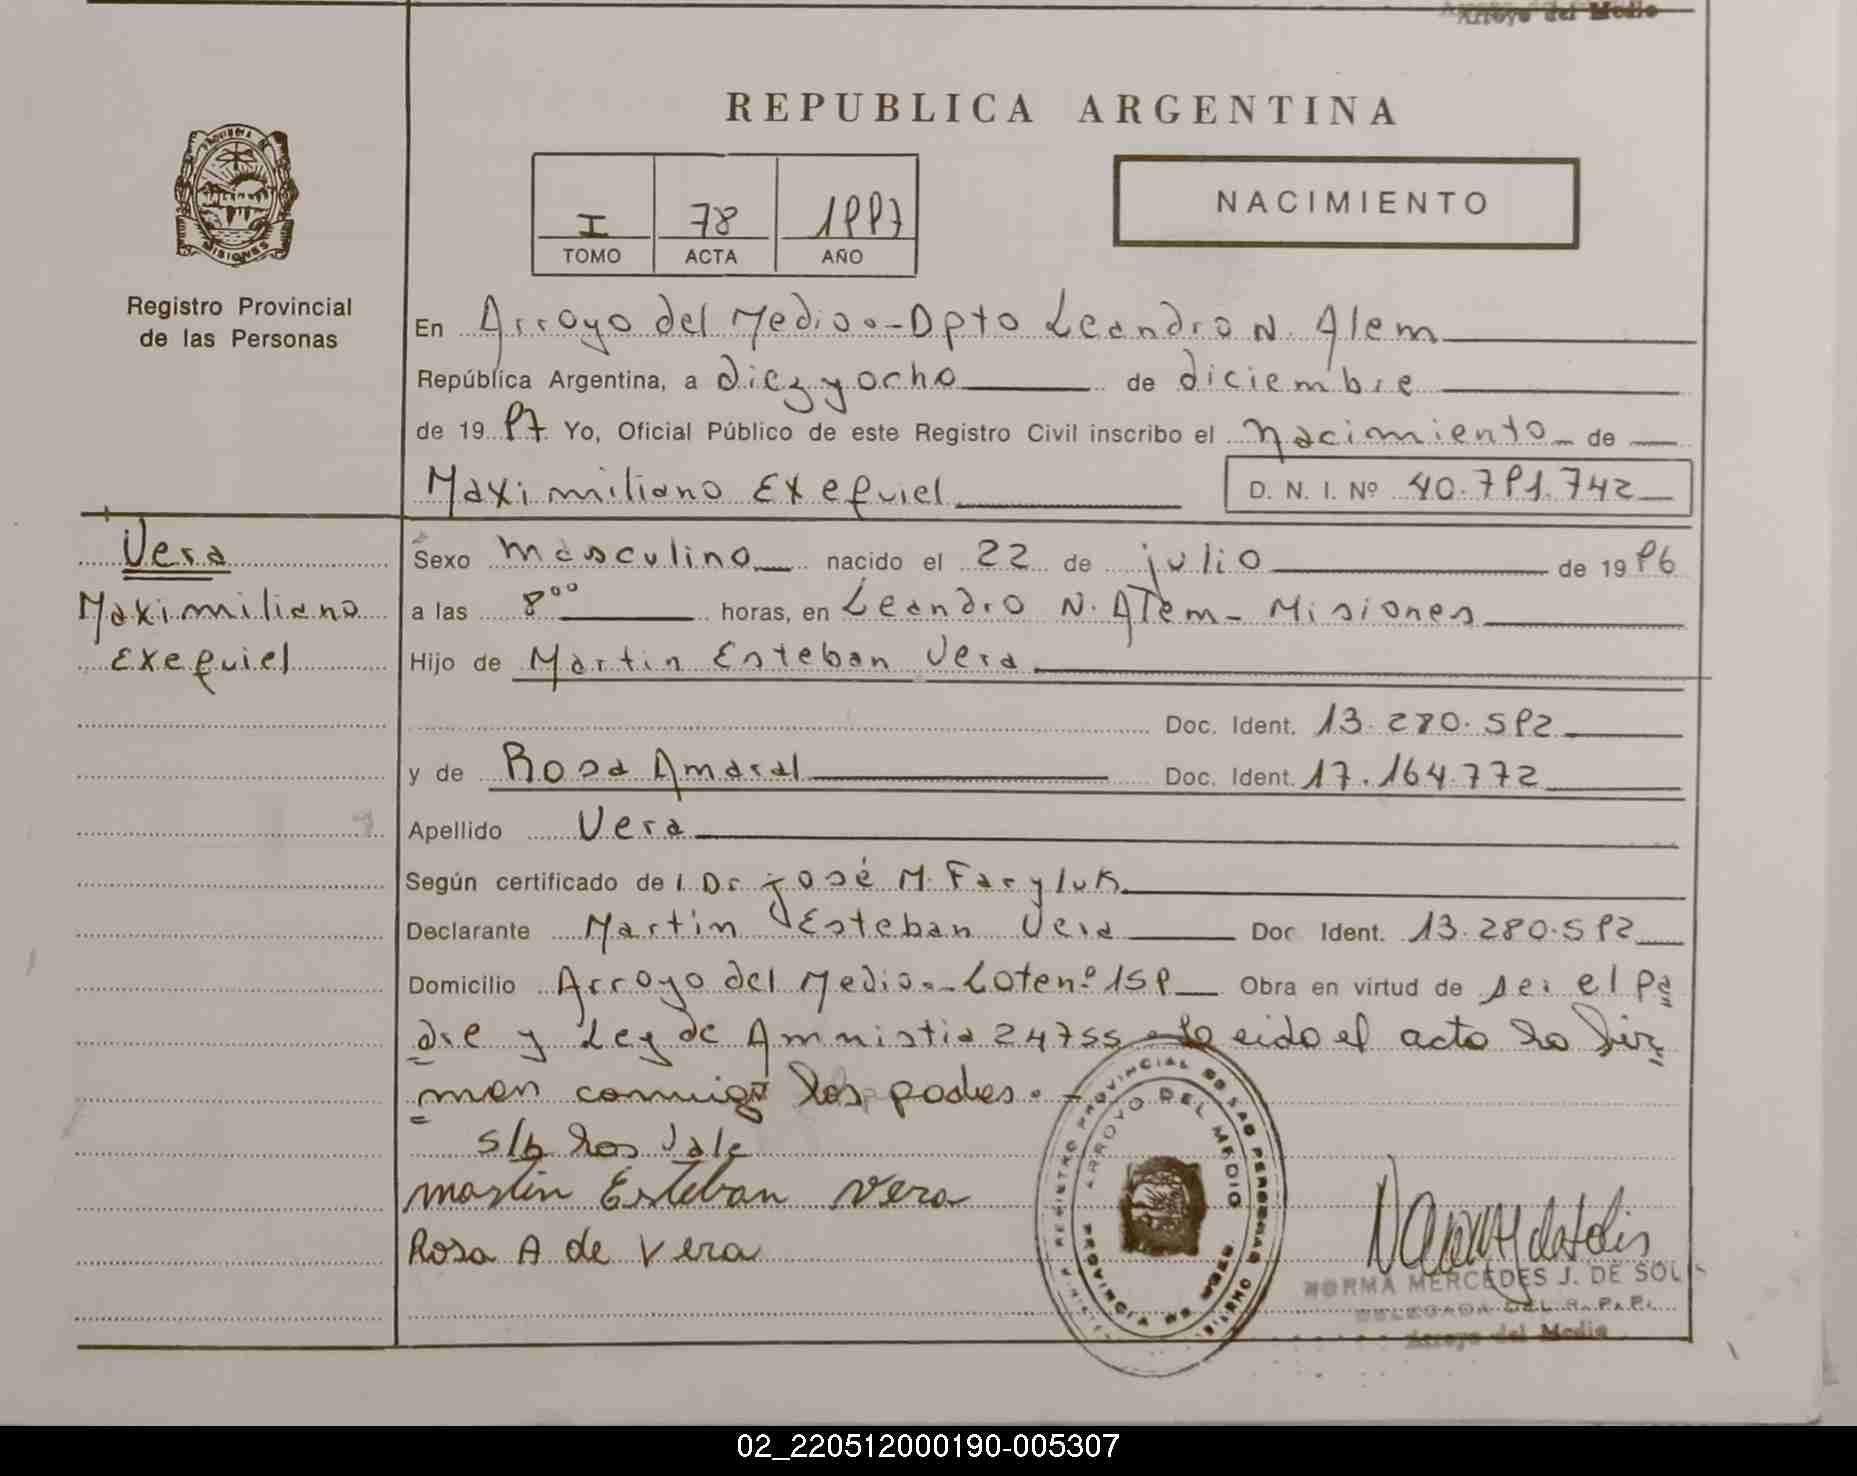 Arroyo del Medio
REPUBLICA ARGENTINA
I 78 1997
TOMO ACTA AÑO
NACIMIENTO
PROVINCIA DE
MISIONES
Registro Provincial
de las Personas
En Arroyo del Medio.- Dpto Leandro N. Alem
República Argentina, a diez y ocho de diciembre
de 1997 Yo, Oficial Público de este Registro Civil inscribo el nacimiento de
Maximiliano Exequiel D. N. I. Nº 40.791.742
Vera
Maximiliano
Exequiel
Sexo masculino nacido el 22 de julio de 1996
a las 8°° horas, en Leandro N. Alem - Misiones
Hijo de Martin Esteban Vera
Doc. Ident. 13.280.592
y de Rosa Amaral Doc. Ident. 17.164.772
Apellido Vera
Según certificado de l Dr José M. Faryluk
Declarante Martin Esteban Vera Doc Ident. 13.280.592
Domicilio Arroyo del Medio.- Lote nº 159 Obra en virtud de ser el pa"
dre y Ley de Amnistia 24755 - leido el acta la fir"
man conmigo los padres. -
s/b los Vale
martin Esteban Vera
Rosa A de Vera
REGISTRO PROVINCIAL DE LAS PERSONAS
ARROYO DEL MEDIO
PROVINCIA DE MISIONES
NORMA MERCEDES J. DE SOLIS
DELEGADA DEL R. P. P.
Arroyo del Medio
02_220512000190-005307